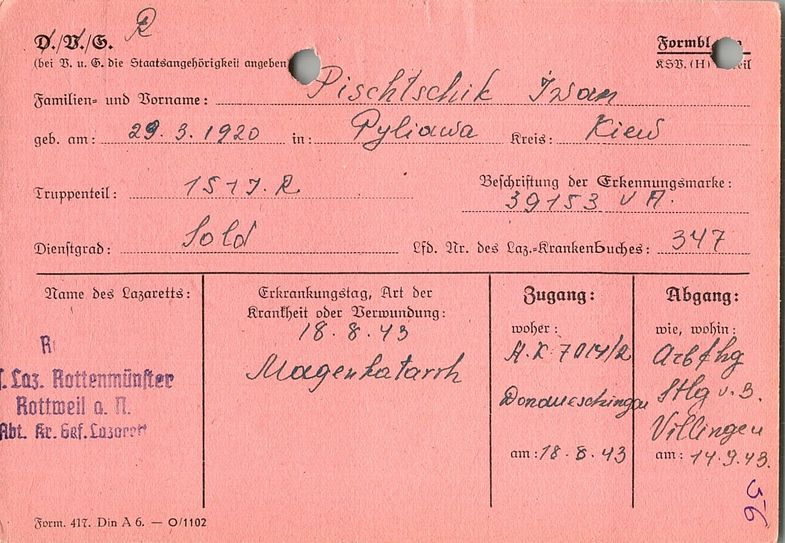 D./V./G. R
Formbl.
(bei V. u. G. die Staatsangehörigkeit angeben)
KSV. (H) Teil
Familien- und Vorname: Pischtschik Iwan
geb. am: 29.3.1920 in: Pyliawa Kreis: Kiew
Truppenteil: 151 J. R
Beschriftung der Erkennungsmarke:
39153 V A.
Dienstgrad: Sold
Lfd. Nr. des Laz.-Krankenbuches: 347
Name des Lazaretts:
R
Laz. Rottenmünster
Rottweil a. N.
Abt. Kr. Gef. Lazarett
Erkrankungstag, Art der
Krankheit oder Verwundung:
18.8.43
Magenkatarrh
Zugang:
woher:
A.K. 7014/2
Donaueschingen
am: 18.8.43
Abgang:
wie, wohin:
Arbfhg
Stlg v. B.
Villingen
am: 14.9.43.
56
Form. 417. Din A 6. — O/1102